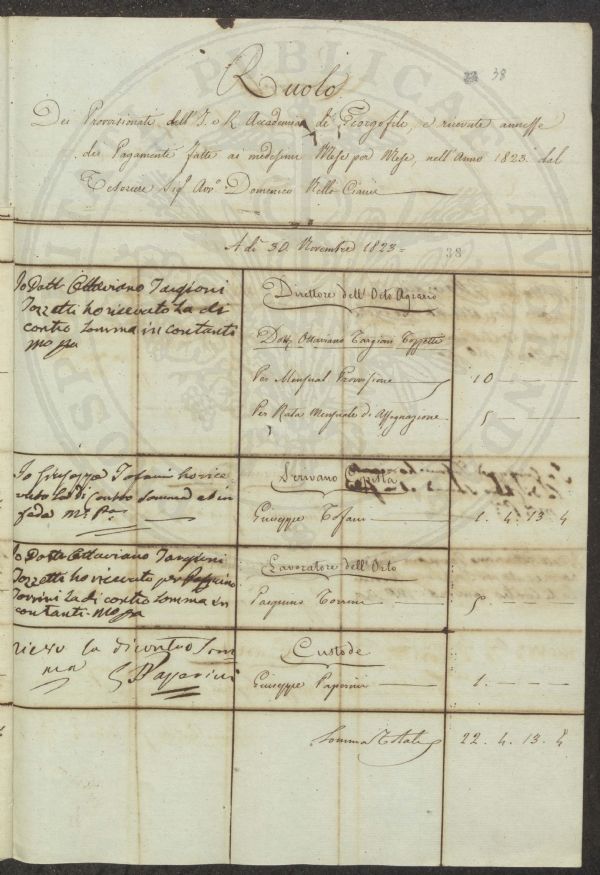 38
Ruolo
Dei Provisionati dell'I. e R. Accademia de' Georgofili, e ricevute annesse
dei Pagamenti fatti ai medesimi Mese per Mese, nell'Anno 1823. dal
Tesoriere Sig. Avv. Domenico Nello Ciani
A dì 30. Novembre 1823 =
38
Io Dott. Ottaviano Targioni
Tozzetti ho ricevuto la di
contro somma in contanti
Mo ppa
Direttore dell'Orto Agrario
Dott. Ottaviano Targioni Tozzetti
Per Mensual Provisione 10
Per Rata Mensuale di Assegnazione 5
Io Giuseppe Tofani ho rice
vuto la di contro somma ed in
fede M. Pa.
Scrivano Copista
Giuseppe Tofani 1. 4. 13. 4
Io Dotte Ottaviano Targioni
Tozzetti ho ricevuto per Pasquino
Torrini la di contro somma in
contanti Mo ppa
Lavoratore dell'Orto
Pasquino Torrini 5
ricevo la dicontro Som
ma
G Paperini
Custode
Giuseppe Paperini 1.
Somma Totale 22. 4. 13. 4